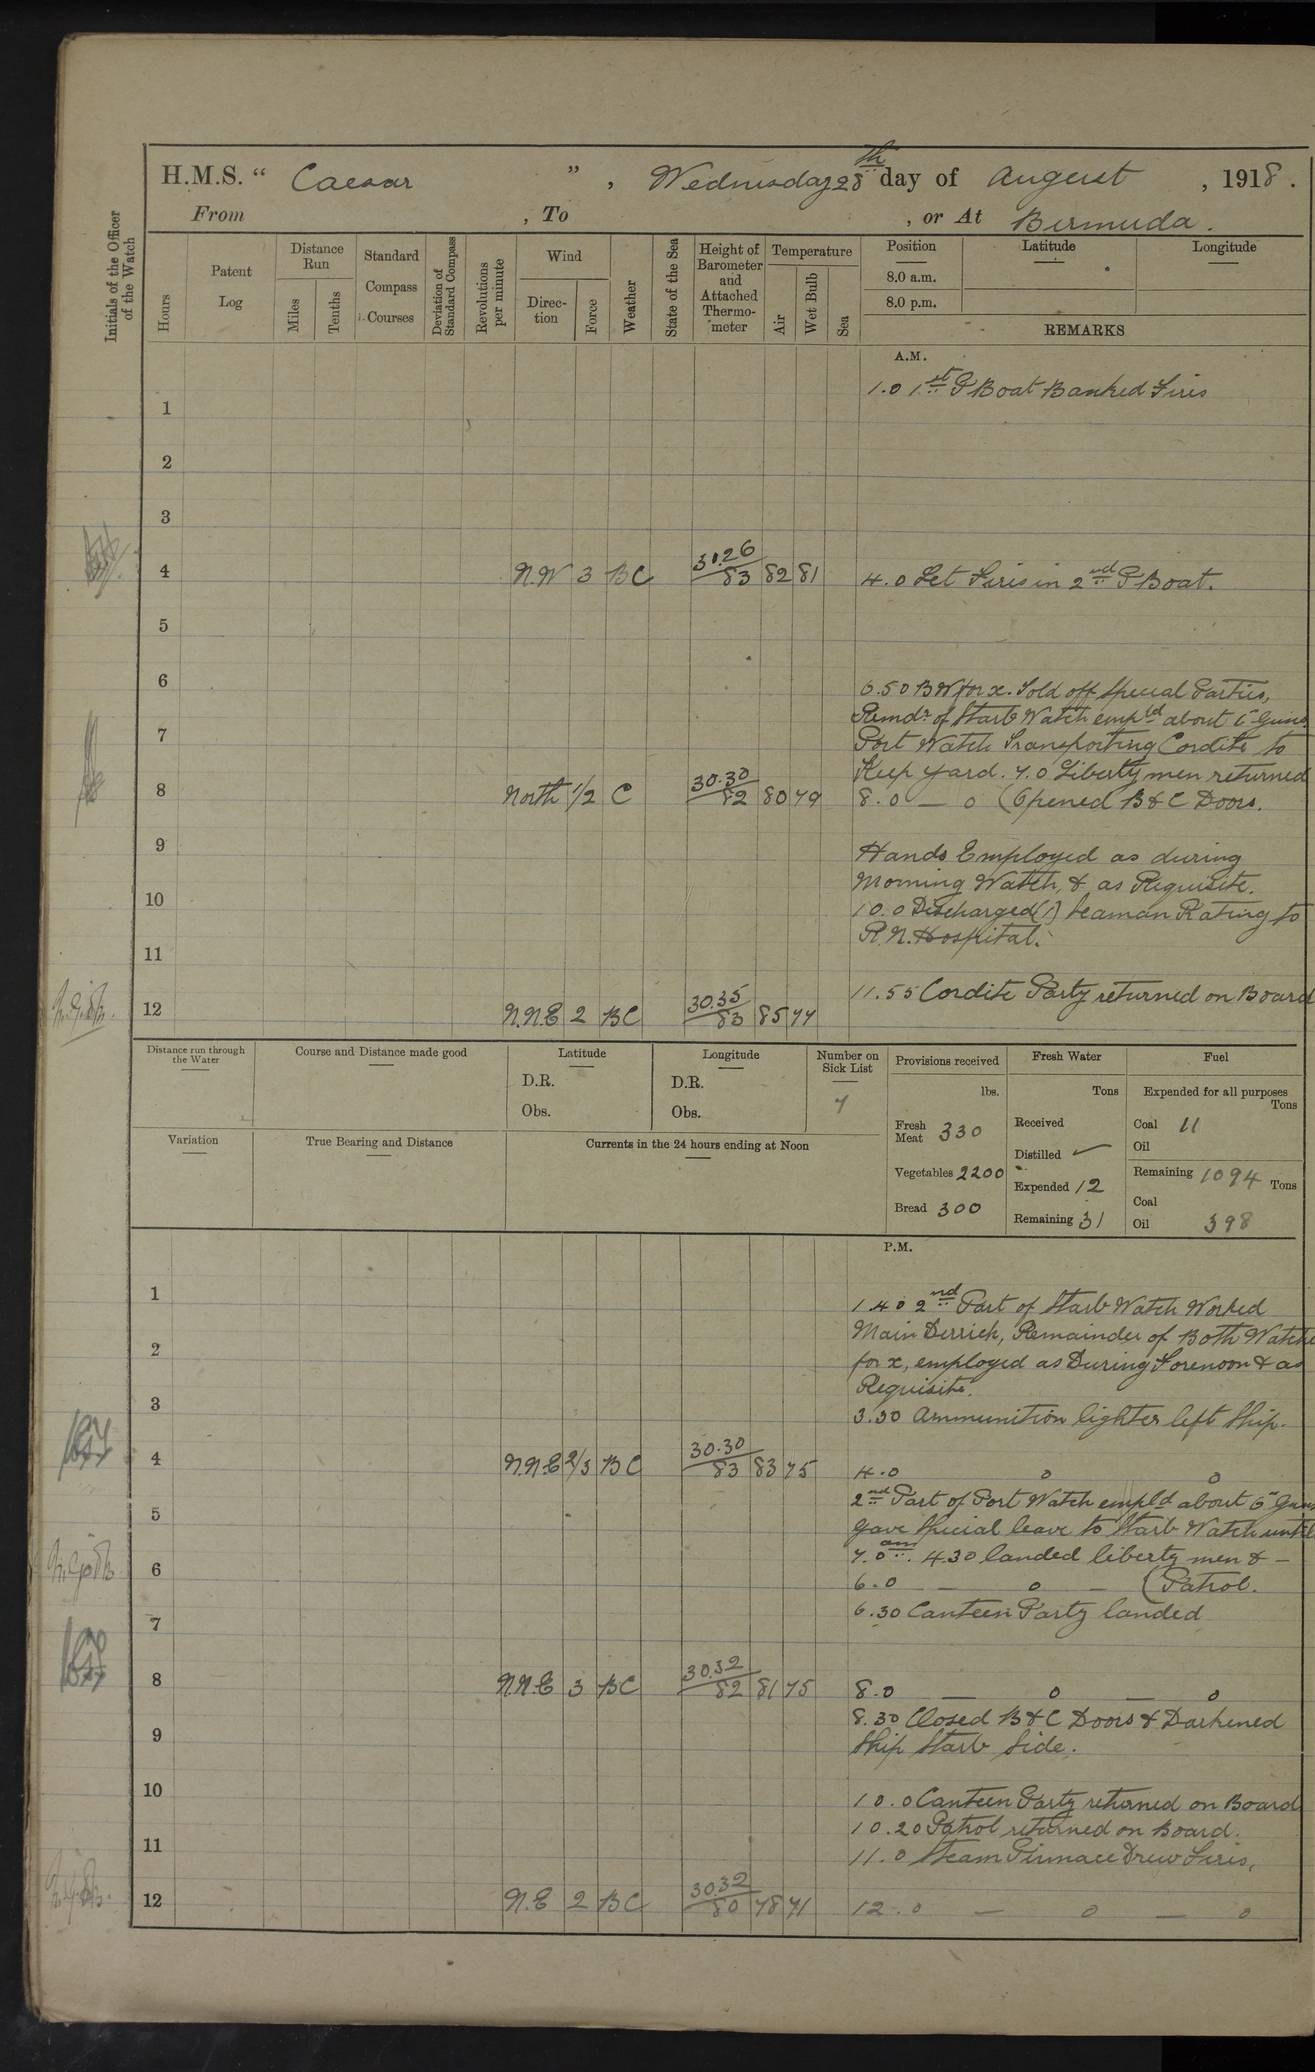 H.M.S. " Caesar ", Wednesday 28th day of August, 1918.
From , To , or At Bermuda.
Initials of the Officer of the Watch
Hours
Patent Log
Distance Run
Miles
Tenths
Standard Compass Courses
Deviation of Standard Compass
Revolutions per minute
Wind
Direc-tion
Force
Weather
State of the Sea
Height of Barometer and Attached Thermo-meter
Temperature
Air
Wet Bulb
Sea
Position Latitude Longitude
8.0 a.m.
8.0 p.m.
REMARKS
A.M.
1.0 1st P Boat Banked Fires
1
2
3
4 N.W 3 BC 30.26/83 82 81 4.0 Let Fires in 2nd P Boat.
5
6
6.50 BW for x. Told off Special Parties,
Remdr of Starb Watch empld about 6" Guns.
7
Port Watch Transporting Cordite to
Keep Yard. 7.0 Liberty men returned
8 North 1/2 C 30.30/82 80 79 8.0 — o (Opened B & C Doors.
9
Hands Employed as during
Morning Watch, & as Requisite.
10
10.0 Discharged (1) Seaman Rating to
R.N. Hospital.
11
11.55 Cordite Party returned on Board
12 N.N.E 2 BC 30.35/83 85 77
Distance run through the Water
Course and Distance made good
Latitude
D.R.
Obs.
Longitude
D.R.
Obs.
Number on Sick List
7
Provisions received
lbs.
Fresh Meat 330
Vegetables 2200
Bread 300
Fresh Water
Tons
Received
Distilled
Expended 12
Remaining 31
Fuel
Expended for all purposes
Tons
Coal 11
Oil
Remaining 1094 Tons
Coal
Oil 398
Variation
True Bearing and Distance
Currents in the 24 hours ending at Noon
P.M.
1
1.40 2nd Part of Starb Watch Worked
Main Derrick, Remainder of Both Watches
2
for x, employed as During Forenoon & as
Requisite.
3
3.30 Ammunition lighter left Ship.
4 N.N.E 2/3 BC 30.30/83 83 75 4.0 o o
2nd Part of Port Watch empld about 6" Guns
5
Gave Special leave to Starb Watch until
7.0 am. 4.30 landed liberty men & —
6
6.0 — o — (Patrol.
6.30 Canteen Party landed
7
8 N.N.E 3 BC 30.32/82 81 75 8.0 — o — o
8.30 Closed B & C Doors & Darkened
9
Ship Starb Side.
10
10.0 Canteen Party returned on Board
10.20 Patrol returned on Board.
11
11.0 Steam Pinnace Drew Fires,
12 N.E 2 BC 30.32/80 78 71 12.0 — o — o